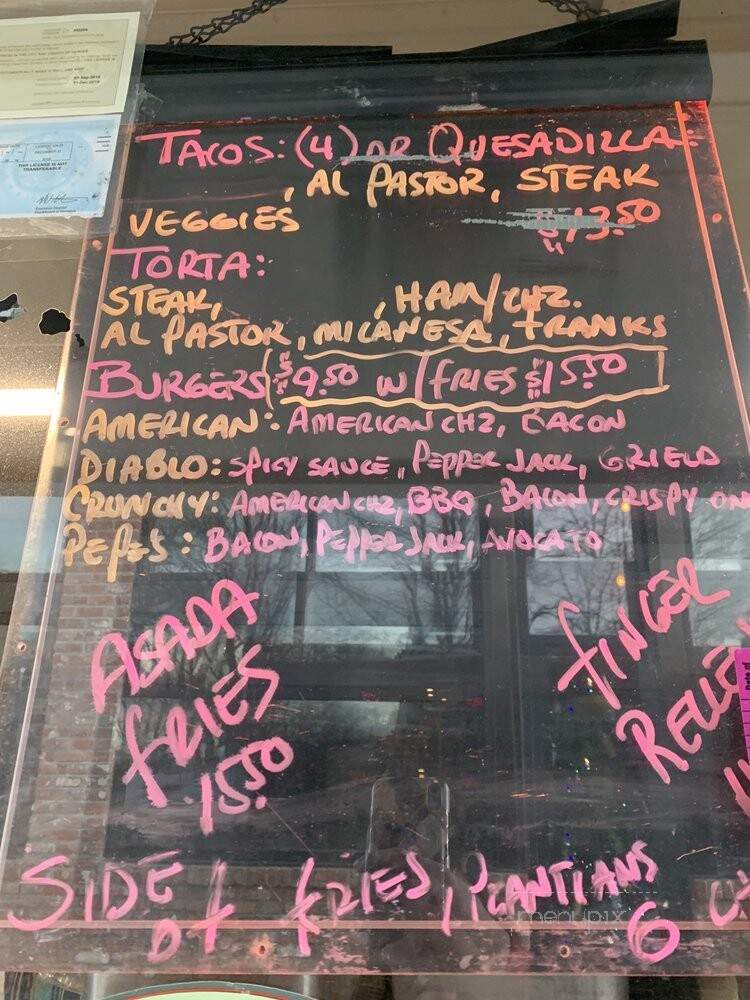 THIS LICENSE IS NOT
TRANSFERABLE
TACOS: (4) OR QUESADILLA:
, AL PASTOR, STEAK
VEGGIES $13.50
TORTA:
STEAK, , HAM/CHZ.
AL PASTOR, MILANESA, FRANKS
BURGERS $9.50 W/FRIES $15.50
AMERICAN: AMERICAN CHZ, BACON
DIABLO: SPICY SAUCE, PEPPER JACK, GRIELD
CRUNCHY: AMERICAN CHZ, BBQ, BACON, CRISPY ON
PEPES: BACON, PEPPER JACK, AVOCATO
ASADA
FRIES
15.50
FINGER
RELLE
SIDE OF FRIES, PLANTIANS
6
menupix